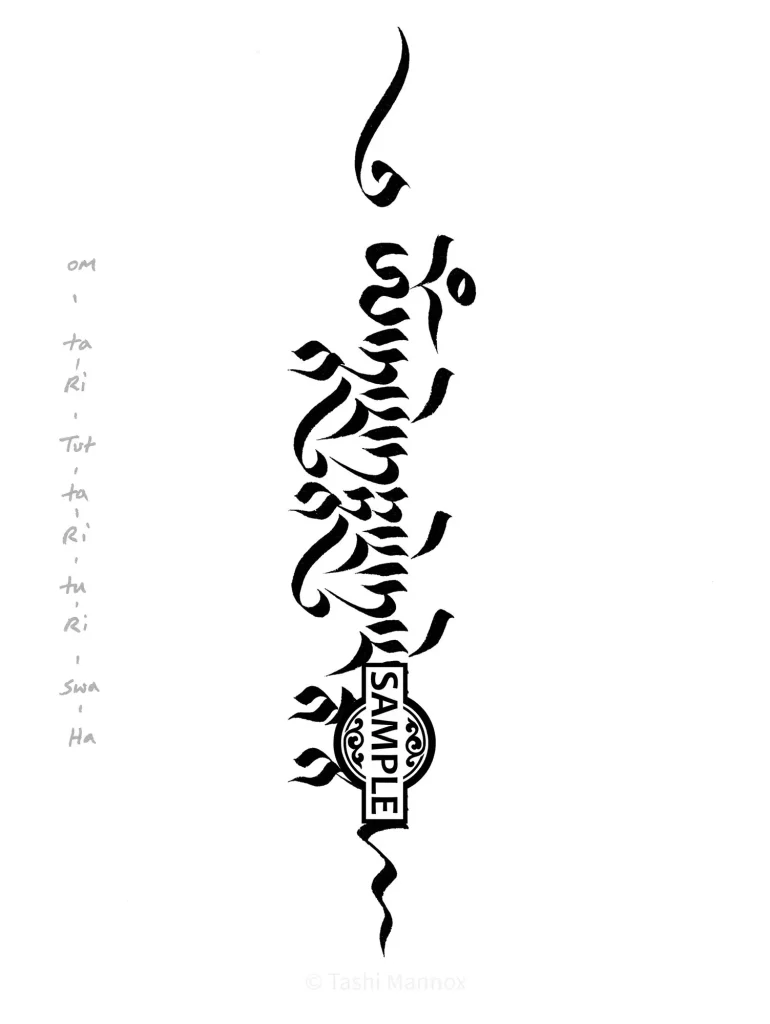 ༀ་ཏཱ་རེ་ཏུཏྟཱ་རེ་ཏུ་རེ་
OM
-
ta
-
Ri
-
Tut
-
ta
-
Ri
-
tu
-
Ri
-
swa
-
Ha
SAMPLE
© Tashi Mannox